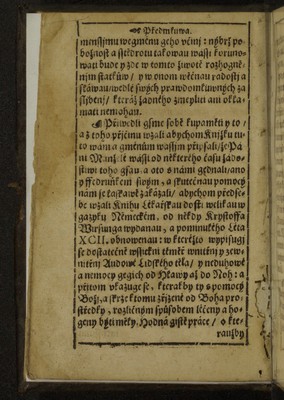 Předmluwa.
menssjmu wegménu geho včinj: nýbrž po-
božnost a sstědrotu takowau wasši korunow
wati bude y zde w tomto žiwotě rozhogně-
njm statkůw / y w onom wěčnau radostj a
sláwau / wedlé swých prawdomluwných za
sljbenj / kteráž žádného zmeyliti ani okla-
mati nemohau.
Přiwedli gsme sobě ku paměti y to /
a že toho přjčinu wzali abychom Knjžku tu-
to wám a gménům wassjm připsali / že Pa-
nj Manžele wassi od některého času žado-
stiwi toho gsau, a oto s námi gednali / ano
y s ředlnjkem swým / a skutečnau pomocý
nám ge laskawě zakázali / abychom předse-
be wzali Knihu Lékařskau dosti welikau w
gazyku Německém, od někdy Krysstoffa
Wirsunga wydanau, a pominulého Léta
XCII. obnowenau: w kteréžto wypisugj
se dostatečně wssickni téměř wnitřnj y zew-
nitřnj Audowé Lidského těla / y neduhowé
a nemocy gegich od Hlawy až do Noh: a
přitom vkazuge se, kterak by ty s pomocý
Božj, a skrze k tomu zřjzené od Boha pro-
středky, rozličným způsobem léčeny a ho-
geny býti měly, Hodná gistě práce / o kte-
raužby